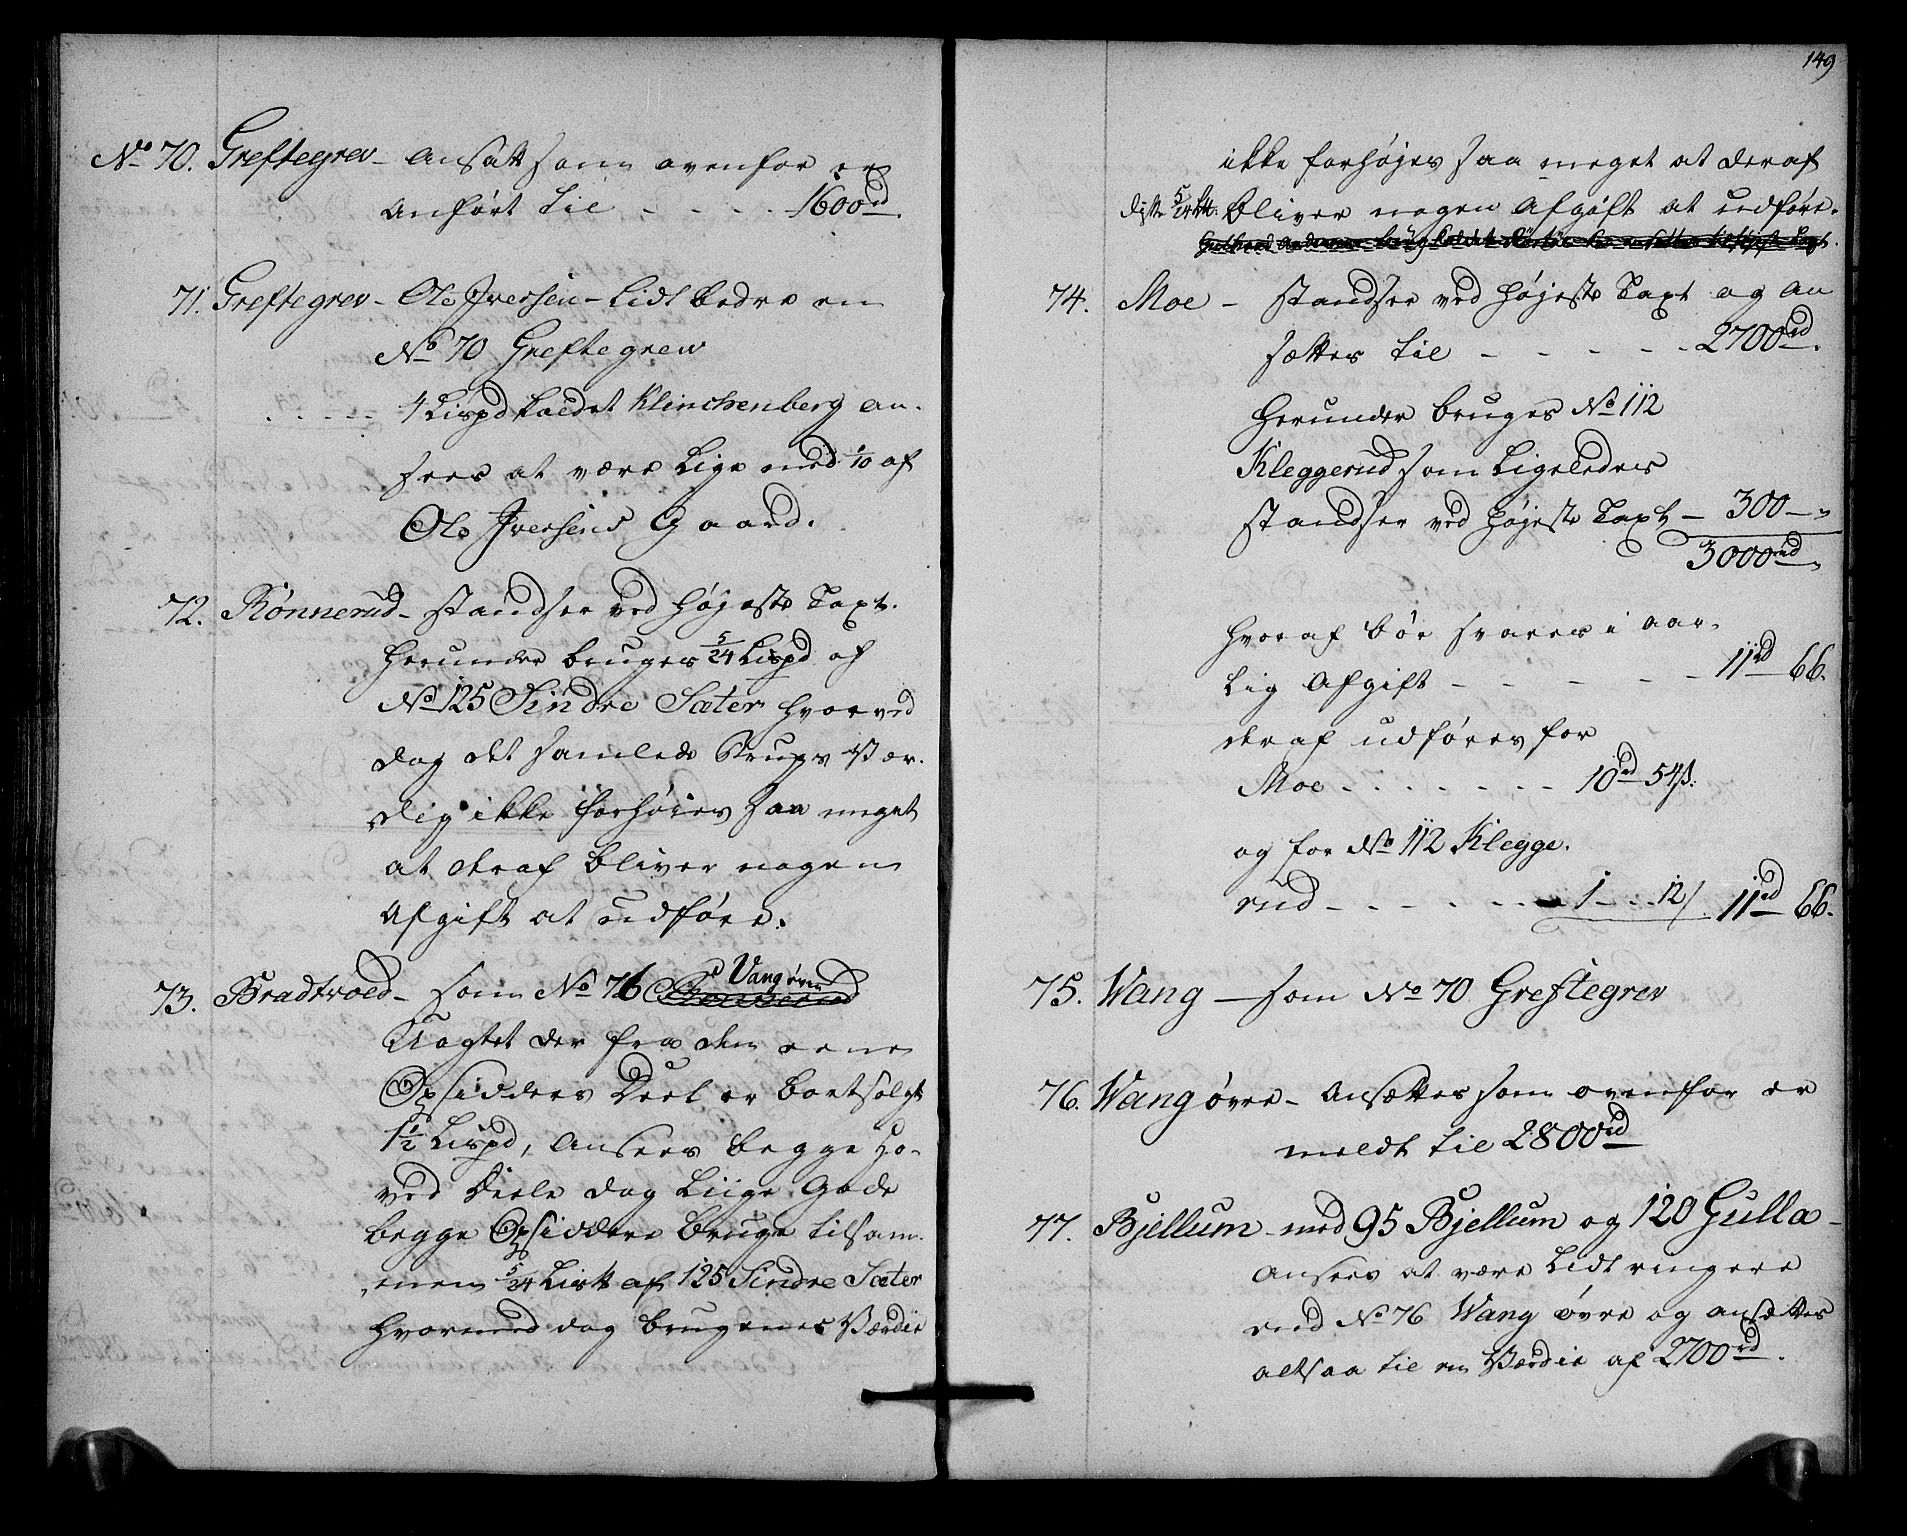 No 70. Greftegrev - Ansatt som ovenfor er
Anført til - - - - 1600rd.
71. Greftegrev - Ole Iversen - lidt bedre en
No 70 Greftegrew
- - - - - 1 Lispd kaldet Klinchenberg an-
sees at være Lige med 1/10 af
Ole Iversens Gaard.
72. Rønnerud - standser ved højeste Taxt.
Herunder bruges 5/24 Lispd af
No 125 Sindre Sæter hvorved
dog det samlede Brugs Vær-
dig ikke forhøies saa meget
at deraf bliver nogen
Afgift at udføre.
73. Bradtvold - som No 76 Vang øvre
Uagtet der fra den eene
Opsidders Deel er bortsolgt
1 1/2 Lispd, Ansees begge Ho-
ved Deele dog Liige Gode
begge Opsiddere bruge tilsam-
men 5/24 Lis℔ af 125 Sindre Sæter
hvormed dog brugenes Værdie
149
ikke forhøjes saa meget at deraf
disse 5/24 L℔. bliver nogen Afgift at udføre.
74. Moe - standser ved højeste Taxt og an
sættes til - - - - - 2700rd.
Herunder bruges No 112
Kleggerud som Ligeledes
standser ved højeste Taxt - 300 - "
3000rd.
hvoraf bør svares i aar-
lig Afgift - - - - - 11rd 66.
deraf udføres for
Moe - - - - - - - 10rd 54ß.
og for No 112 Klegge-
rud - - - - - - 1 - - 12/ 11rd 66.
75. Wang - som No 70 Greftegrev
76. Wang øvre - Ansættes som ovenfor er
meldt til 2800rd
77. Bjellum - med 95 Bjellum og 120 Gulla -
Ansees at være Lidt ringere
end No 76 Wang øvre og ansættes
altsaa til en Værdie af 2700rd.